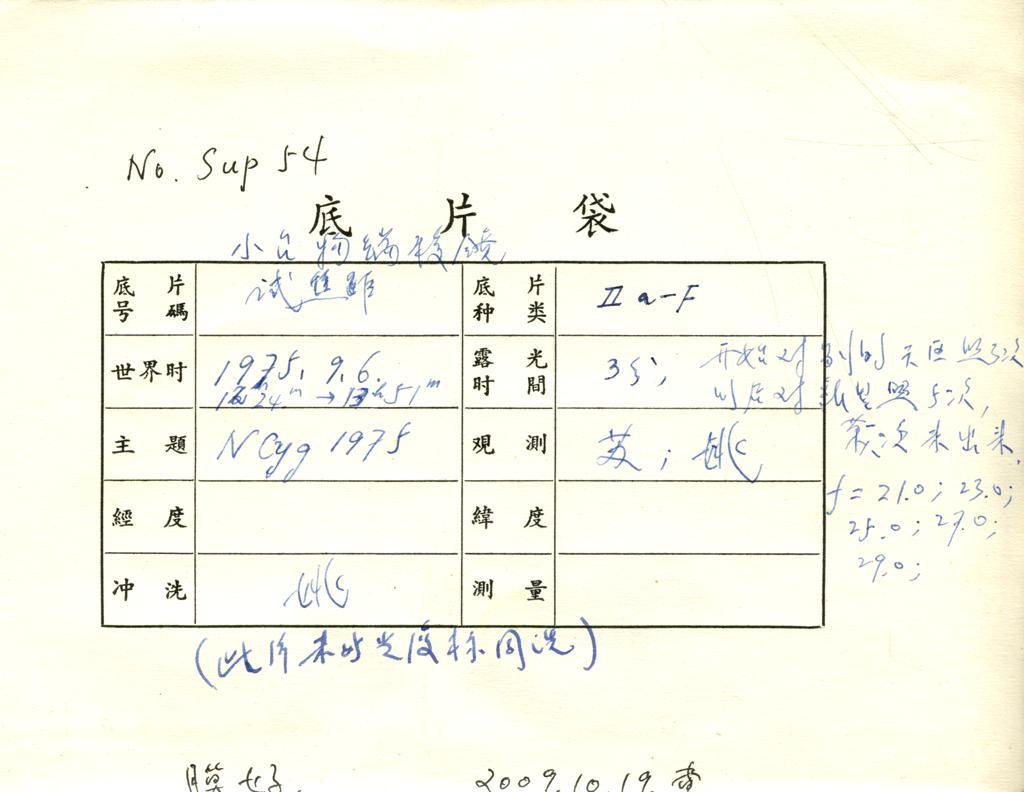 No. Sup 54
底片袋
小口物端棱镜
试焦距
底片号碼
底片种类 IIa-F
世界时 1975. 9. 6.
露光时間 3分, 开始对别的天区照3次
以后对新星照5次,
主題 N Cyg 1975
观測 黄; 姚
第二次未出来.
f = 21.0; 23.0;
25.0; 27.0;
29.0;
經度
緯度
冲洗 姚
測量
(此片未与光度标同洗)
膜好.
2009.10.19. 查